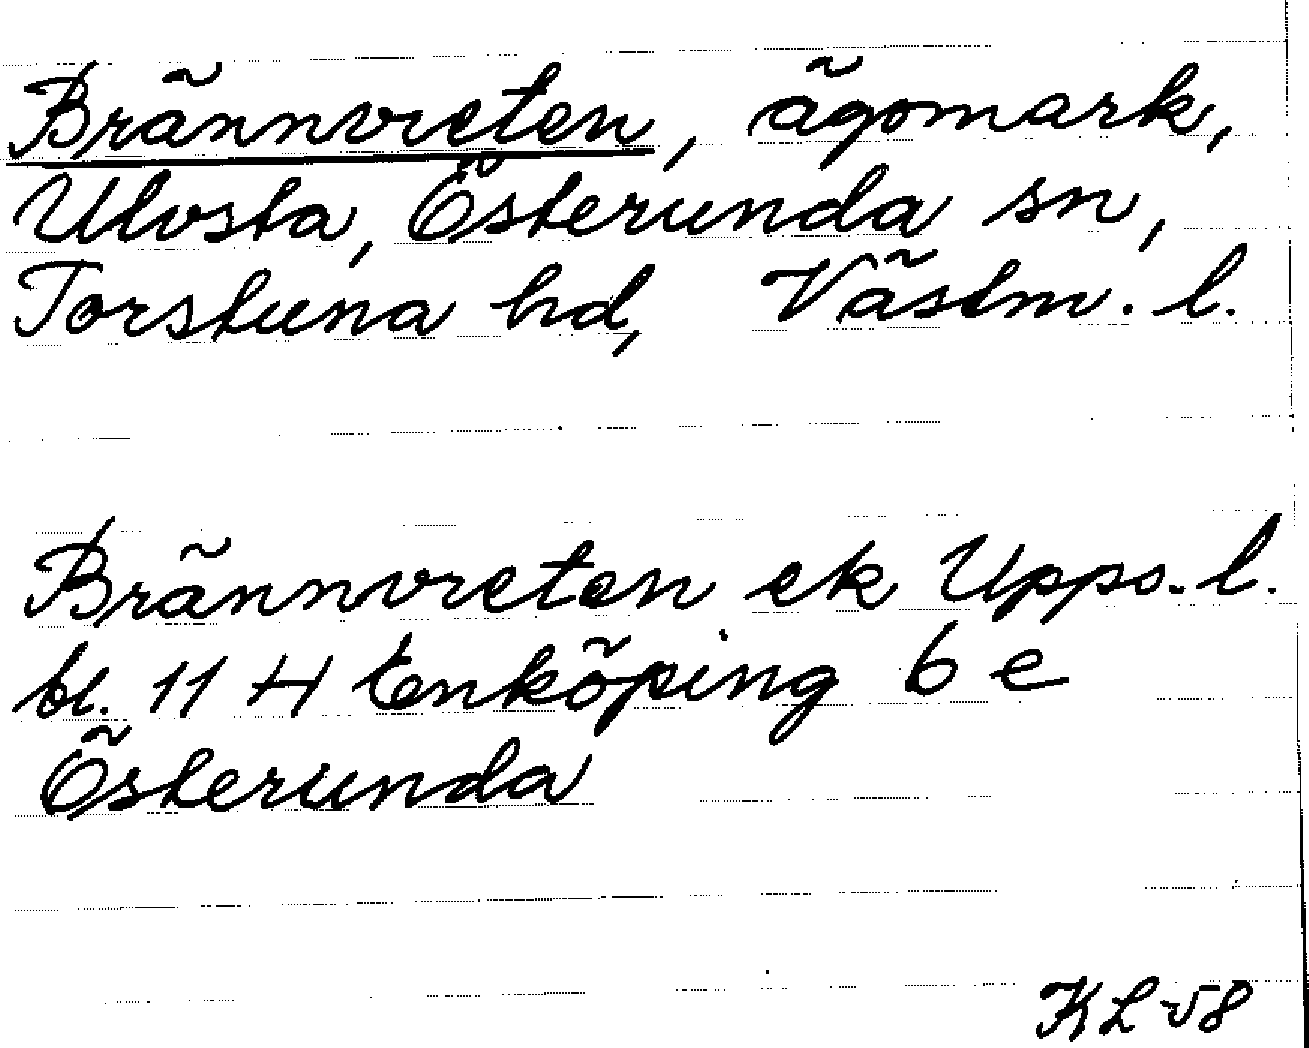 Brännvreten, ägomark,
Ulvsta, Österunda sn,
Torstuna hd, Västm. l.
Brännvreten ek Upps. l.
bl. 11 H Enköping 6 e
Österunda
KL-58